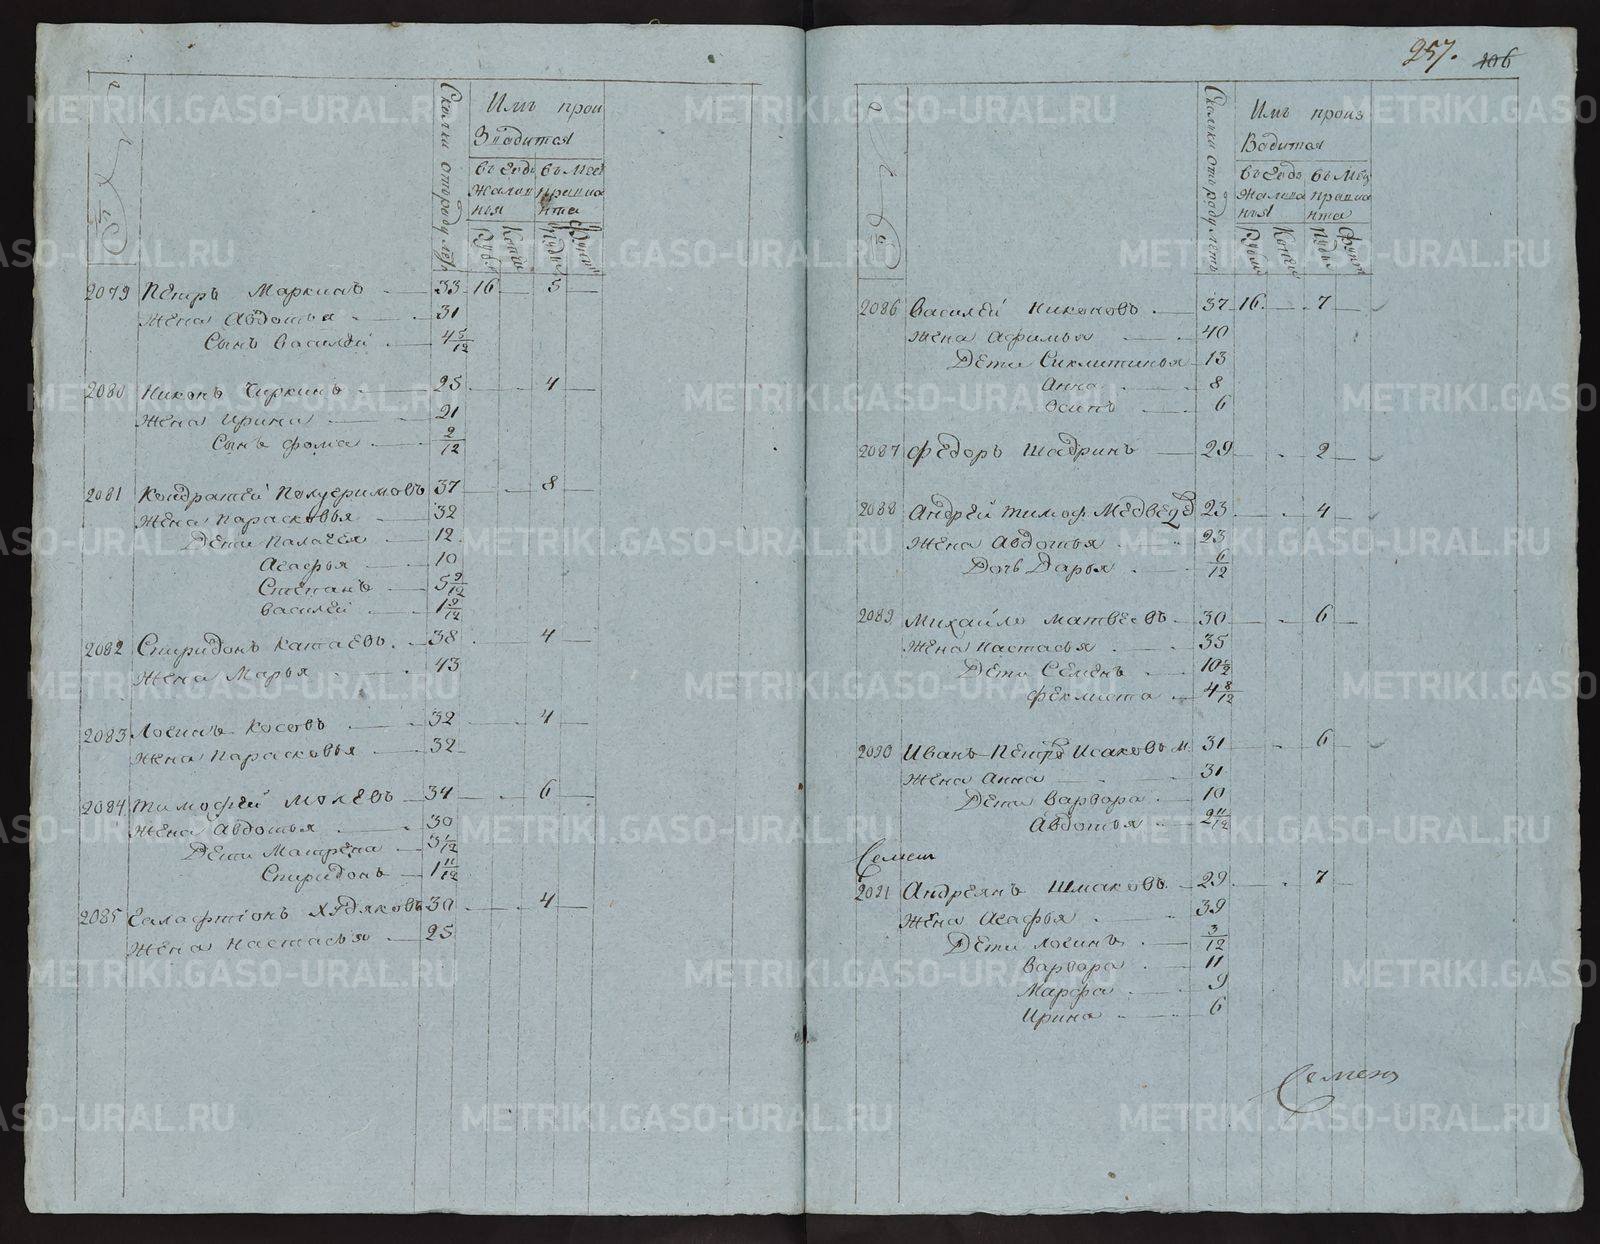 257. 106
Сколки отъ роду летъ
Имъ прои
зводится
въ Годъ въ Мсъ
Жалов провиа
нья нта
Рубл Копе Пуды Фунт
2079 Петръ Маркинъ 33 16 5
Жена Авдотья 31
Сынъ Василей 4 5/12
2080 Никонъ Чиркинъ 25 4
Жена Ирина 21
Сынъ Фома 2/12
2081 Кондратей Полуеримовъ 37 8
Жена Парасковья 32
Дети Палагея 12
Агафья 10
Степанъ 5 9/12
Василей 1 9/12
2082 Спиридонъ Катаевъ 38 4
Жена Марья 43
2083 Логинъ Косовъ 32 4
Жена Парасковья 32
2084 Тимофей Мокеевъ 34 6
Жена Авдотья 30
Дети Матрена 3 1/12
Спиридонъ 1 11/12
2085 Галафтiонъ Худяковъ 30 4
Жена Настасья 25
Сколки отъ роду летъ
Имъ произ
водится
въ Годъ въ Мсц
Жалова провиа
нья нта
Рубли Копеи Пуды Фунт
2086 Василей Никоновъ 37 16 7
Жена Афимья 40
Дети Сиклитинья 13
Анна 8
Осипъ 6
2087 Федоръ Шадринъ 29 2
2088 Андрей Тимоф. Медведе 23 4
Жена Авдотья 23
Дочь Дарья 6/12
2089 Михайло Матвеевъ 30 6
Жена Настасья 35
Дети Семенъ
Феклиста 4 8/12
2090 Иванъ Петръ Исаковъ м. 31 6
Жена Анна 31
Дети Варвара 10
Авдотья 2 11/12
Семен
2091 Андреянъ Шмаковъ 29 7
Жена Агафья 39
Дети Логинъ 3/12
Варвара 11
Марфа 9
Ирина 6
Семенъ
METRIKI.GASO-URAL.RU